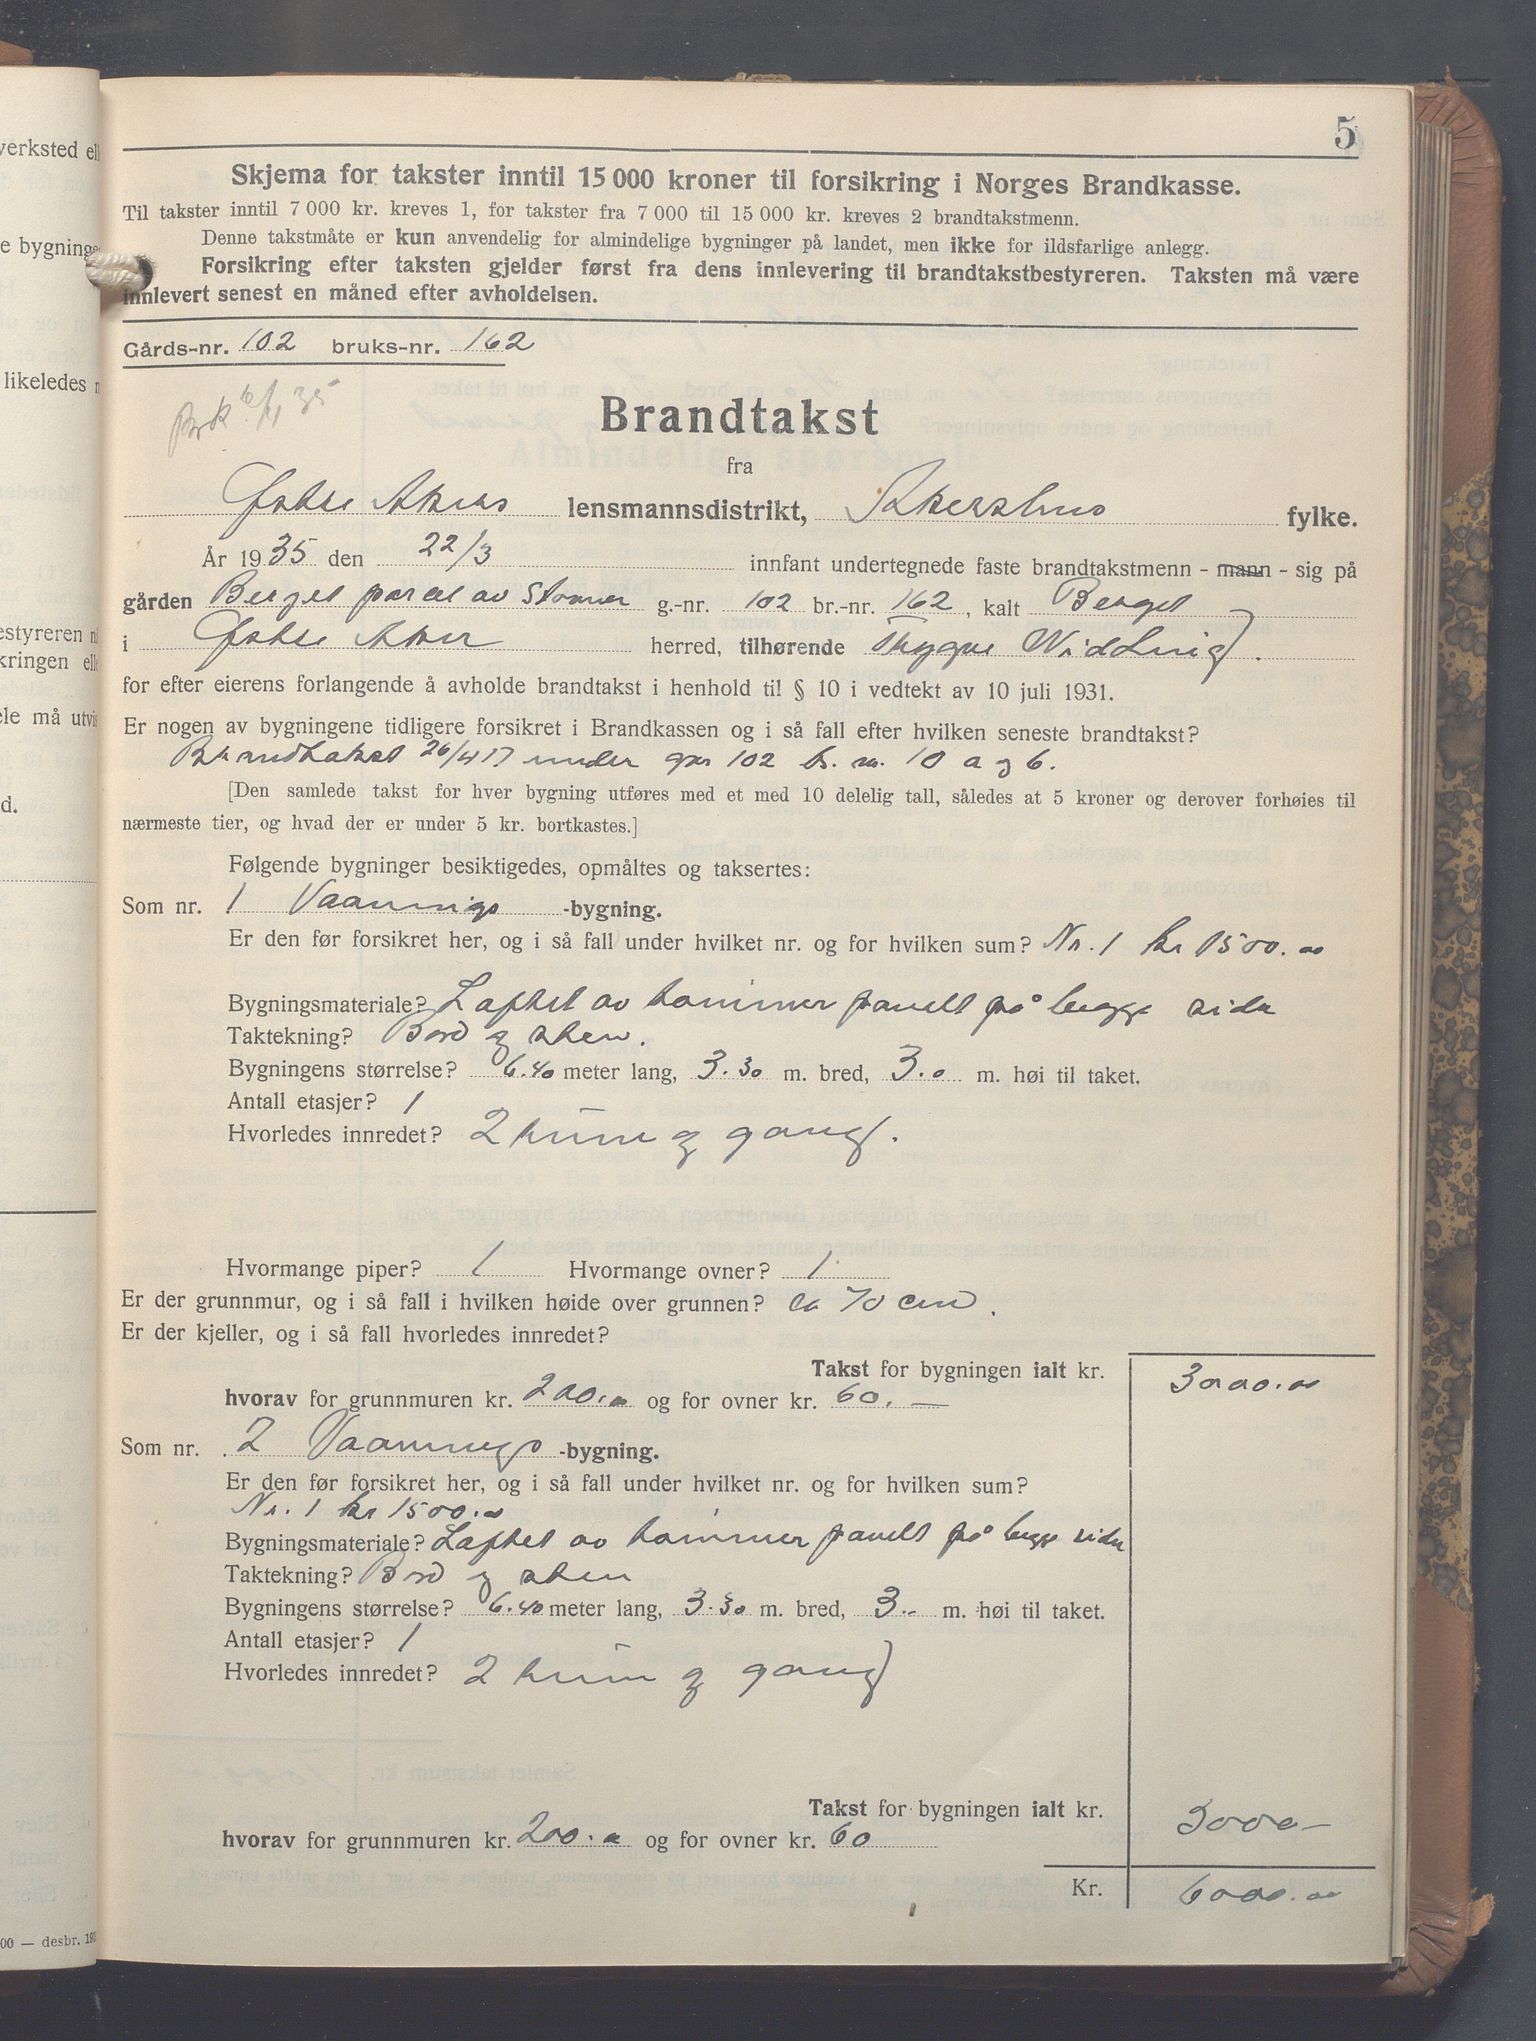 5
Skjema for takster inntil 15 000 kroner til forsikring i Norges Brandkasse.
Til takster inntil 7 000 kr. kreves 1, for takster fra 7 000 til 15 000 kr. kreves 2 brandtakstmenn.
Denne takstmåte er kun anvendelig for almindelige bygninger på landet, men ikke for ildsfarlige anlegg.
Forsikring efter taksten gjelder først fra dens innlevering til brandtakstbestyreren. Taksten må være
innlevert senest en måned efter avholdelsen.
Gårds-nr. 102 bruks-nr. 162
Brandtakst
fra
Østre Aker lensmannsdistrikt, Akershus fylke.
År 1935 den 22/3 innfant undertegnede faste brandtakstmenn - mann - sig på
gården Berget parcel av Stovner g.-nr. 102 br.-nr. 162, kalt Berget
i Østre Aker herred, tilhørende Trygve
for efter eierens forlangende å avholde brandtakst i henhold til § 10 i vedtekt av 10 juli 1931.
Er nogen av bygningene tidligere forsikret i Brandkassen og i så fall efter hvilken seneste brandtakst?
Brandtakst 26/4 17 under gnr 102 b. nr. 10 a og b.
[Den samlede takst for hver bygning utføres med et med 10 delelig tall, således at 5 kroner og derover forhøies til
nærmeste tier, og hvad der er under 5 kr. bortkastes.]
Følgende bygninger besiktigedes, opmåltes og taksertes:
Som nr. 1 Vaanings -bygning.
Er den før forsikret her, og i så fall under hvilket nr. og for hvilken sum? Nr. 1 kr 1500.00
Bygningsmateriale? Laftet av tømmer panelt på begge sider
Taktekning? Bord og sten.
Bygningens størrelse? 6.40 meter lang, 3.30 m. bred, 3.0 m. høi til taket.
Antall etasjer? 1
Hvorledes innredet? 2 rum og gang.
Hvormange piper? 1 Hvormange ovner? 1
Er der grunnmur, og i så fall i hvilken høide over grunnen? ca 70 cm.
Er der kjeller, og i så fall hvorledes innredet?
Takst for bygningen ialt kr. 3000.00
hvorav for grunnmuren kr. 200.00 og for ovner kr. 60.—
Som nr. 2 Vaanings -bygning.
Er den før forsikret her, og i så fall under hvilket nr. og for hvilken sum?
Nr. 1 kr 1500.00
Bygningsmateriale? Laftet av tømmer panelt på begge sider
Taktekning? Bord og sten
Bygningens størrelse? 6.40 meter lang, 3.30 m. bred, 3.- m. høi til taket.
Antall etasjer? 1
Hvorledes innredet? 2 rum og gang
Takst for bygningen ialt kr. 3000—
hvorav for grunnmuren kr. 200.00 og for ovner kr. 60
Kr. 6000.00